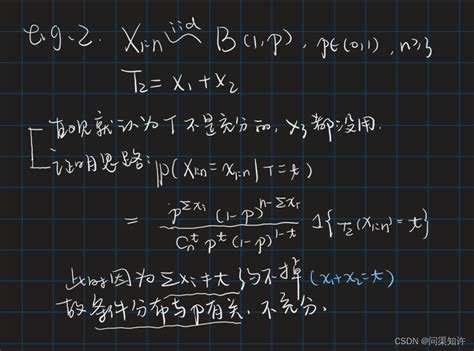 e.g.2. X₁:n iid~ B(1,p), p∈(0,1), n≥3
T₂ = X₁ + X₂
直观就认为T不是充分的, X₃都没用.
证明思路: P(X₁:n = x₁:n | T=t)
= \frac{p^{Σxᵢ} (1-p)^{n-Σxᵢ}}{C_n^t p^t (1-p)^{1-t}} 1{T₂(X₁:n) = t}
此时因为 Σxᵢ ≠ t 约不掉 (x₁+x₂=t)
故条件分布与p有关, 不充分.
CSDN @问渠知许